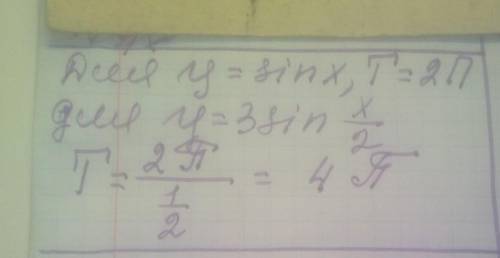 Для y = sin x, T = 2П
для y = 3 sin x/2
T = 2π/(1/2) = 4π